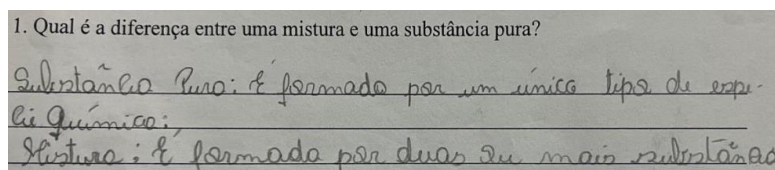 1. Qual é a diferença entre uma mistura e uma substância pura?
Substância Pura: É formada por um único tipo de espé-
cie Química;
Mistura: É formada por duas ou mais substânc